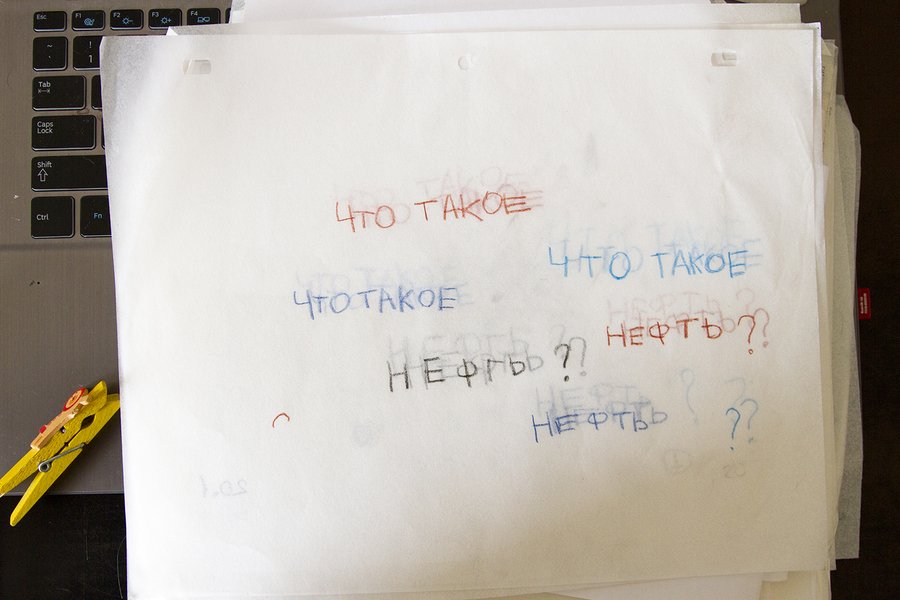 Esc F1 F2 F3 F4
~
! 1
Tab
Caps Lock
Shift
Ctrl Fn
ЧТО ТАКОЕ
ЧТО ТАКОЕ
ЧТО ТАКОЕ
НЕФТЬ ??
НЕФТЬ ??
НЕФТЬ
??